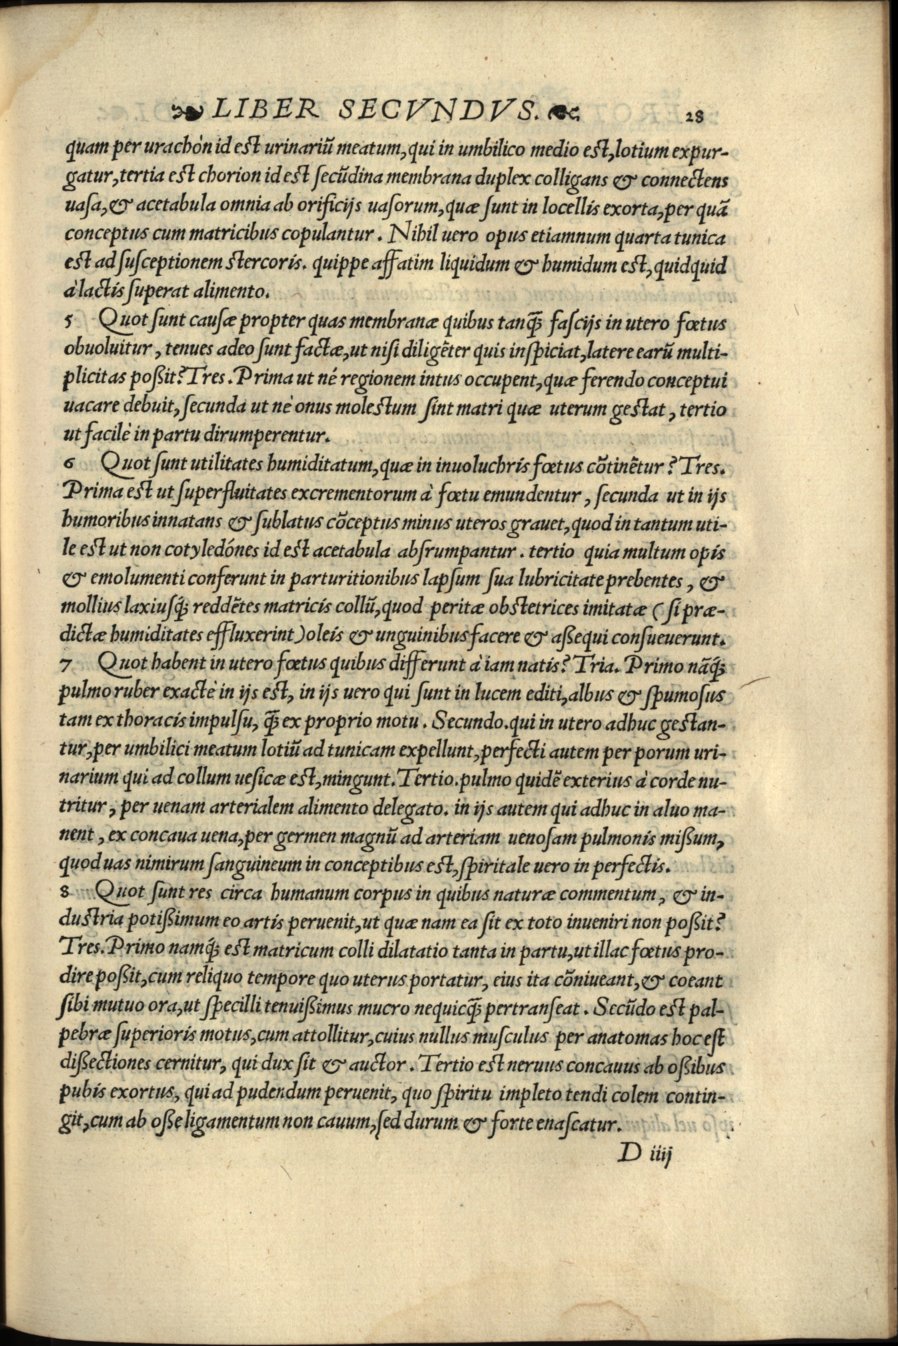 LIBER SECVNDVS. 28
quam per urachòn id est urinariū meatum, qui in umbilico medio est, lotium expur-
gatur, tertia est chorion id est secūdina membrana duplex colligans & connectens
uasa, & acetabula omnia ab orificijs uasorum, quæ sunt in locellis exorta, per quā
conceptus cum matricibus copulantur. Nihil uero opus etiamnum quarta tunica
est ad susceptionem stercoris. quippe affatim liquidum & humidum est, quidquid
à lactis superat alimento.
5 Quot sunt causæ propter quas membranæ quibus tanq̃ fascijs in utero fœtus
obuoluitur, tenues adeo sunt factæ, ut nisi diligēter quis inspiciat, latere earū multi-
plicitas poßit? Tres. Prima ut né regionem intus occupent, quæ ferendo conceptui
uacare debuit, secunda ut nè onus molestum sint matri quæ uterum gestat, tertio
ut facilè in partu dirumperentur.
6 Quot sunt utilitates humiditatum, quæ in inuoluchris fœtus cōtinētur? Tres.
Prima est ut superfluitates excrementorum à fœtu emundentur, secunda ut in ijs
humoribus innatans & sublatus cōceptus minus uteros grauet, quod in tantum uti-
le est ut non cotyledónes id est acetabula absrumpantur. tertio quia multum opis
& emolumenti conferunt in parturitionibus lapsum sua lubricitate prebentes, &
mollius laxiusq́; reddētes matricis collū, quod peritæ obstetrices imitatæ (si præ-
dictæ humiditates effluxerint) oleis & unguinibus facere & aßequi consueuerunt.
7 Quot habent in utero fœtus quibus differunt à iam natis? Tria. Primo nāq́;
pulmo ruber exactè in ijs est, in ijs uero qui sunt in lucem editi, albus & spumosus
tam ex thoracis impulsu, q̃ ex proprio motu. Secundo. qui in utero adhuc gestan-
tur, per umbilici meatum lotiū ad tunicam expellunt, perfecti autem per porum uri-
narium qui ad collum uesicæ est, mingunt. Tertio. pulmo quidē exterius à corde nu-
tritur, per uenam arterialem alimento delegato. in ijs autem qui adhuc in aluo ma-
nent, ex concaua uena, per germen magnū ad arteriam uenosam pulmonis mißum,
quod uas nimirum sanguineum in conceptibus est, spiritale uero in perfectis.
8 Quot sunt res circa humanum corpus in quibus naturæ commentum, & in-
dustria potißimum eo artis peruenit, ut quæ nam ea sit ex toto inueniri non poßit?
Tres. Primo namq́; est matricum colli dilatatio tanta in partu, ut illac fœtus pro-
dire poßit, cum reliquo tempore quo uterus portatur, eius ita cōniueant, & coeant
sibi mutuo ora, ut specilli tenuißimus mucro nequicq̃ pertranseat. Secūdo est pal-
pebræ superioris motus, cum attollitur, cuius nullus musculus per anatomas hoc est
dißectiones cernitur, qui dux sit & auctor. Tertio est neruus concauus ab oßibus
pubis exortus, qui ad pudendum peruenit, quo spiritu impleto tendi colem contin-
git, cum ab oße ligamentum non cauum, sed durum & forte enascatur.
D iiij